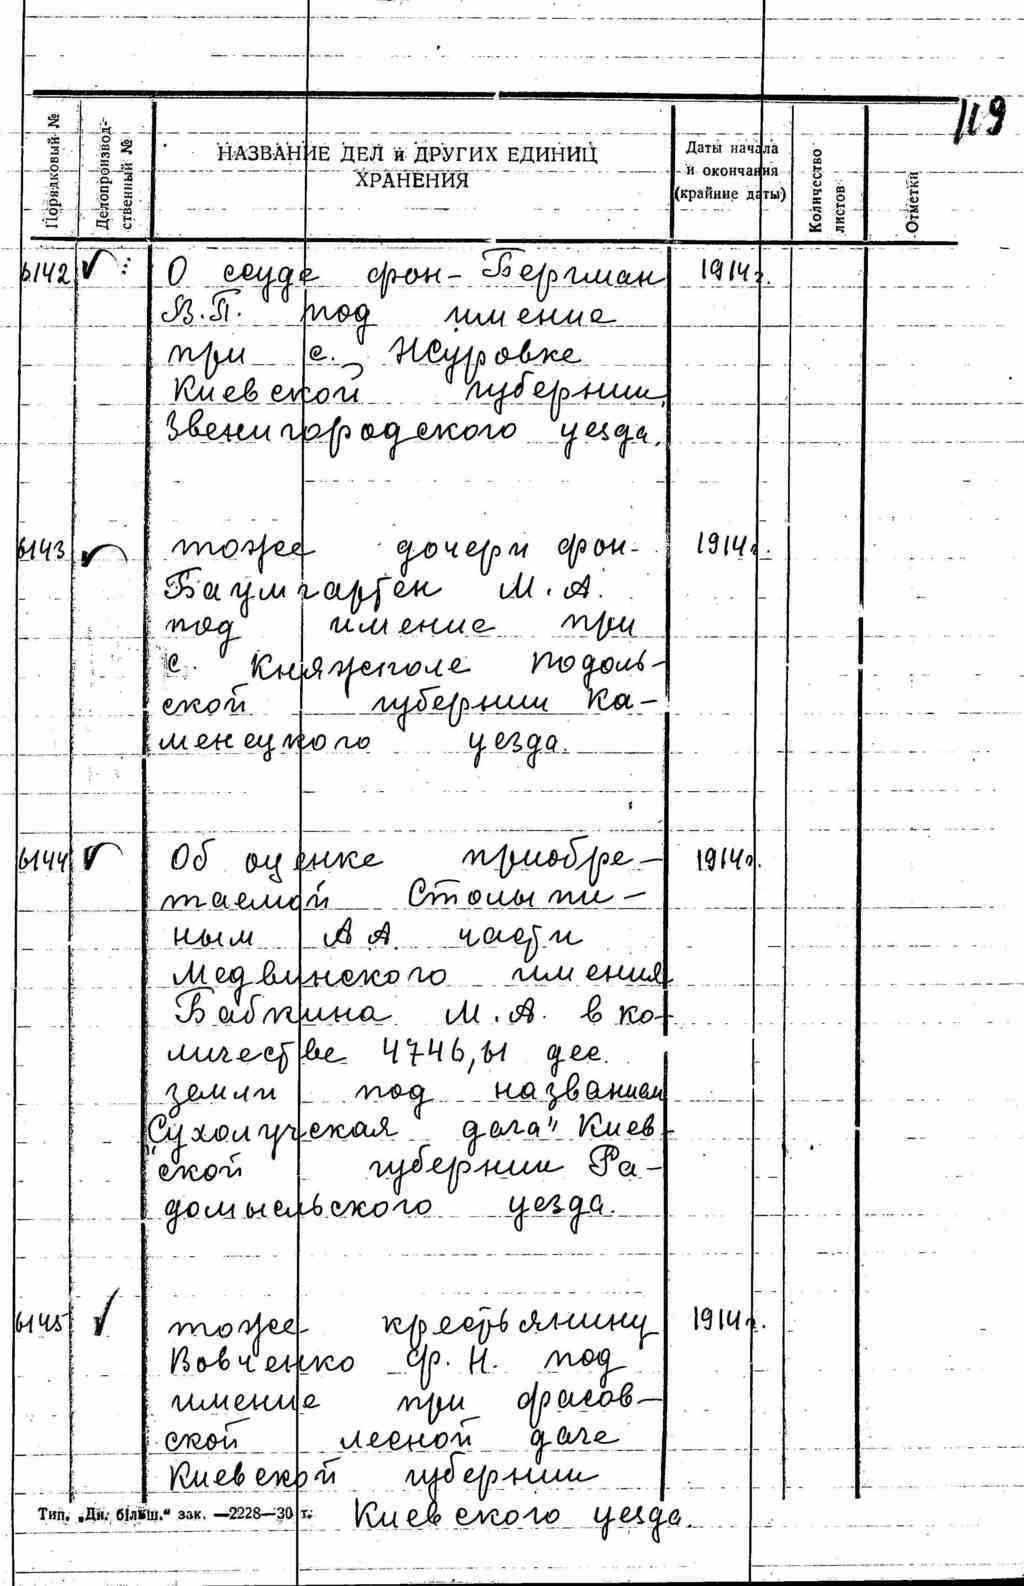 119
Порядковый №
Делопроизвод-
ственный №
НАЗВАНИЕ ДЕЛ и ДРУГИХ ЕДИНИЦ
ХРАНЕНИЯ
Даты начала
и окончания
(крайние даты)
Количество
листов
Отметки
6142 О ссуде фон-Бергман 1914г.
В.П. под имение
при с. Журовке
Киевской губернии,
Звенигородского уезда.
6143 тоже дочери фон- 1914г.
Баумгартен М.А.
под имение при
с. Княжполе Подоль-
ской губернии Ка-
менецкого уезда.
6144 Об оценке приобре- 1914г.
таемой Столыпи-
ным А.А. части
Медвинского имения
Бабкина М.А. в ко-
личестве 4746,61 дес.
земли под названием
"Сухолучская дача" Киев-
ской губернии Ра-
домысльского уезда.
6145 тоже крестьянину 1914г.
Вовченко Ф.Н. под
имение при фасов-
ской лесной даче
Киевской губернии
Киевского уезда.
Тип. „Дн. більш." зак. —2228—30 т.